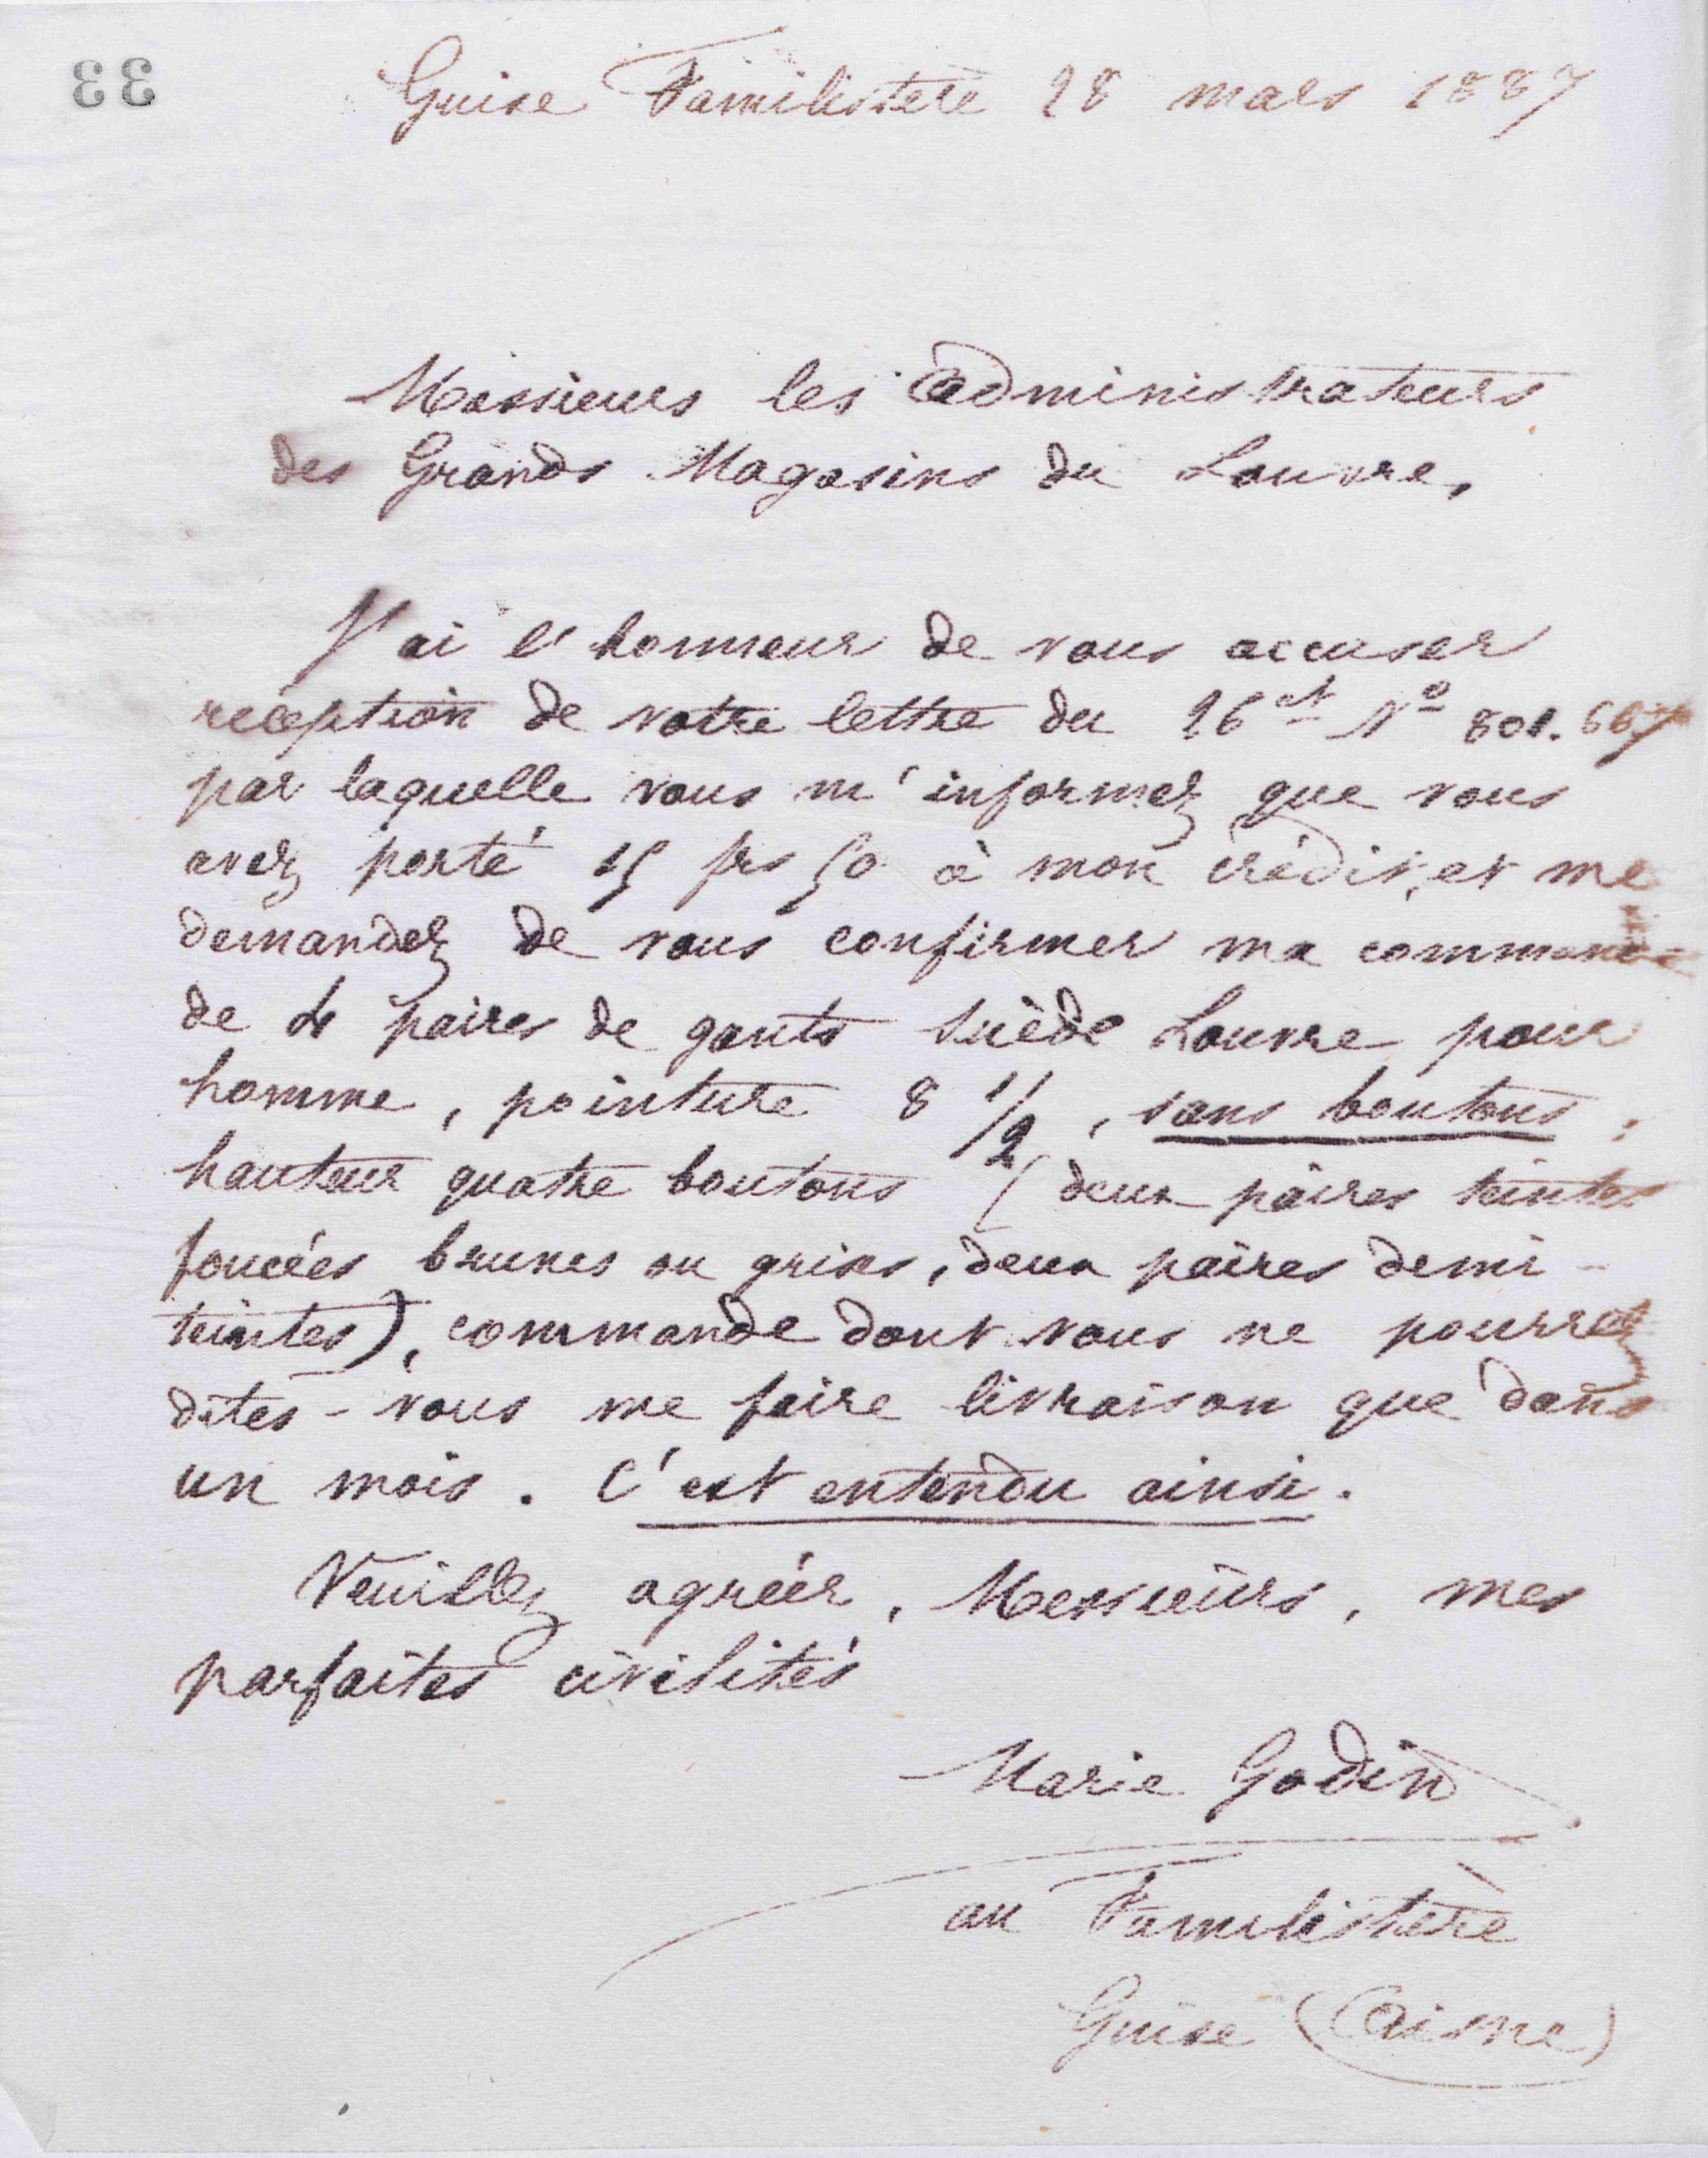 33
Guise Familistère 28 mars 1887
Messieurs les administrateurs
des Grands Magasins du Louvre,
J'ai l'honneur de vous accuser
réception de votre lettre du 26 ct No 801.667
par laquelle vous m'informez que vous
avez porté 15 frs 50 à mon crédit, et me
demandez de vous confirmer ma commande
de 4 paires de gants Suède Louvre pour
homme, pointure 8 1/2, sans boutons,
hauteur quatre boutons (deux paires teintes
foncées brunes ou grises, deux paires demi-
teintes), commande dont vous ne pourrez
dites-vous me faire livraison que dans
un mois. C'est entendu ainsi.
Veuillez agréer, Messieurs, mes
parfaites civilités
Marie Godin
au Familistère
Guise (Aisne)